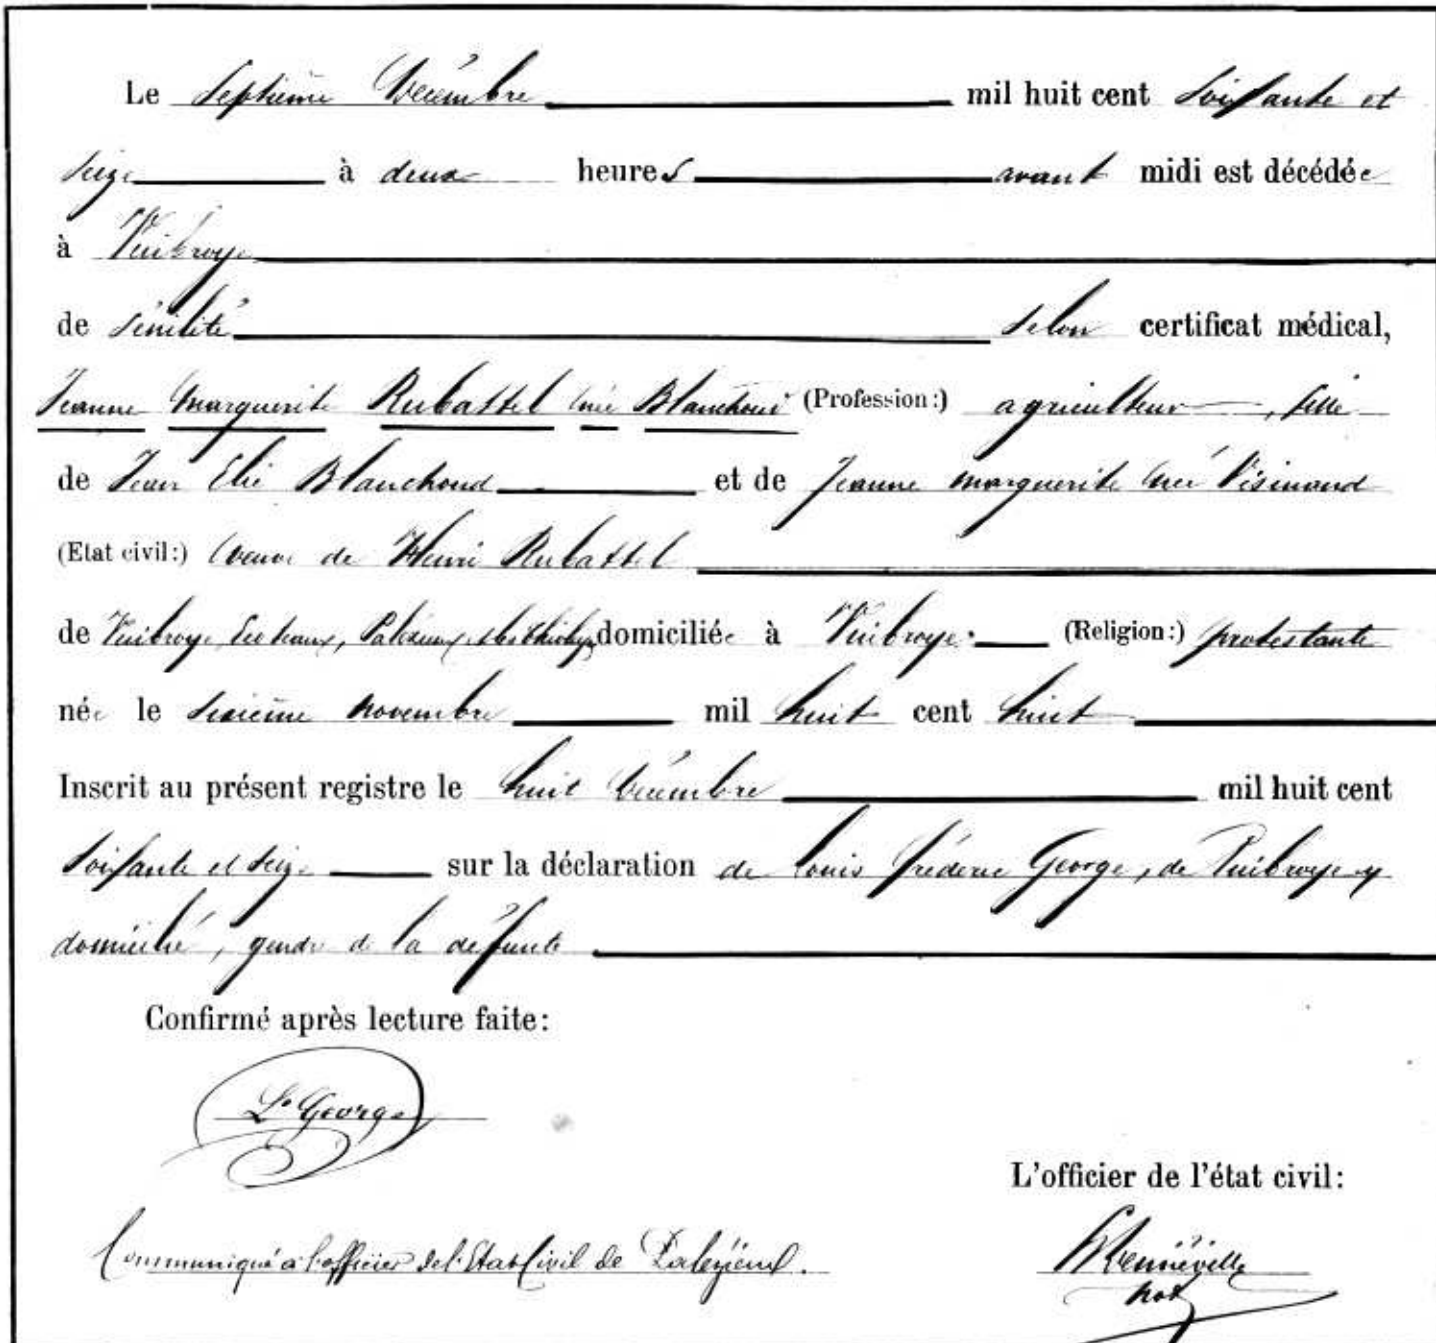 Le Septième Décembre mil huit cent Soissante et
Seize à deux heures avant midi est décédée
à Vuibroye
de Sénilité Selon certificat médical,
Jeanne Marguerite Rubattel née Blanchoud (Profession:) agriculteur, fille
de Jean Elie Blanchoud et de Jeanne Marguerite née Visinand
(Etat civil:) veuve de Henri Rubattel
de Vuibroye, Ecoteaux, Palézieux domiciliée à Vuibroye. (Religion:) protestante
née le novembre mil huit cent huit
Inscrit au présent registre le huit Décembre mil huit cent
Soissante et Seize sur la déclaration de Louis Fréderic George, de Vuibroye y
domicilié, gendre de la défunte
Confirmé après lecture faite:
Ls George
L'officier de l'état civil:
Communiqué à l'officier de l'Etat Civil de Palézieux.
not